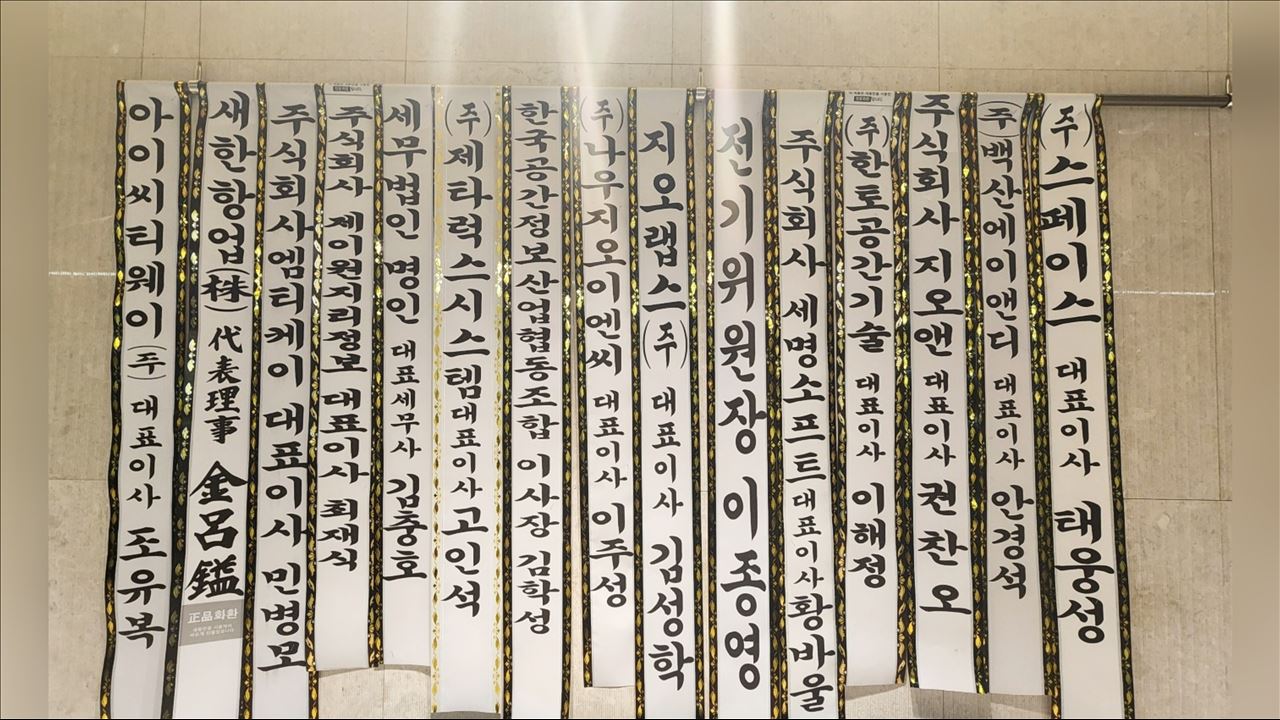 아이씨티웨이(주) 대표이사 도유북
새한항업(株) 代表理事 金呂鎰
正品화환
주식회사엠티케이 대표이사 민병모
주식회사 제이원지리정보 대표이사 최재식
세무법인 명인 대표세무사 김충호
(주)제타럭스시스템대표이사고인석
한국공간정보산업협동조합 이사장 김학성
(주)나우지오이엔씨 대표이사 이주성
지오랩스(주) 대표이사 김성학
전기위원장 이종영
주식회사 세명소프트대표이사황바울
(주)한토공간기술 대표이사 이해정
주식회사 지오앤 대표이사 권찬오
(주)백산에이앤디 대표이사 안경석
(주)스페이스 대표이사 태웅성